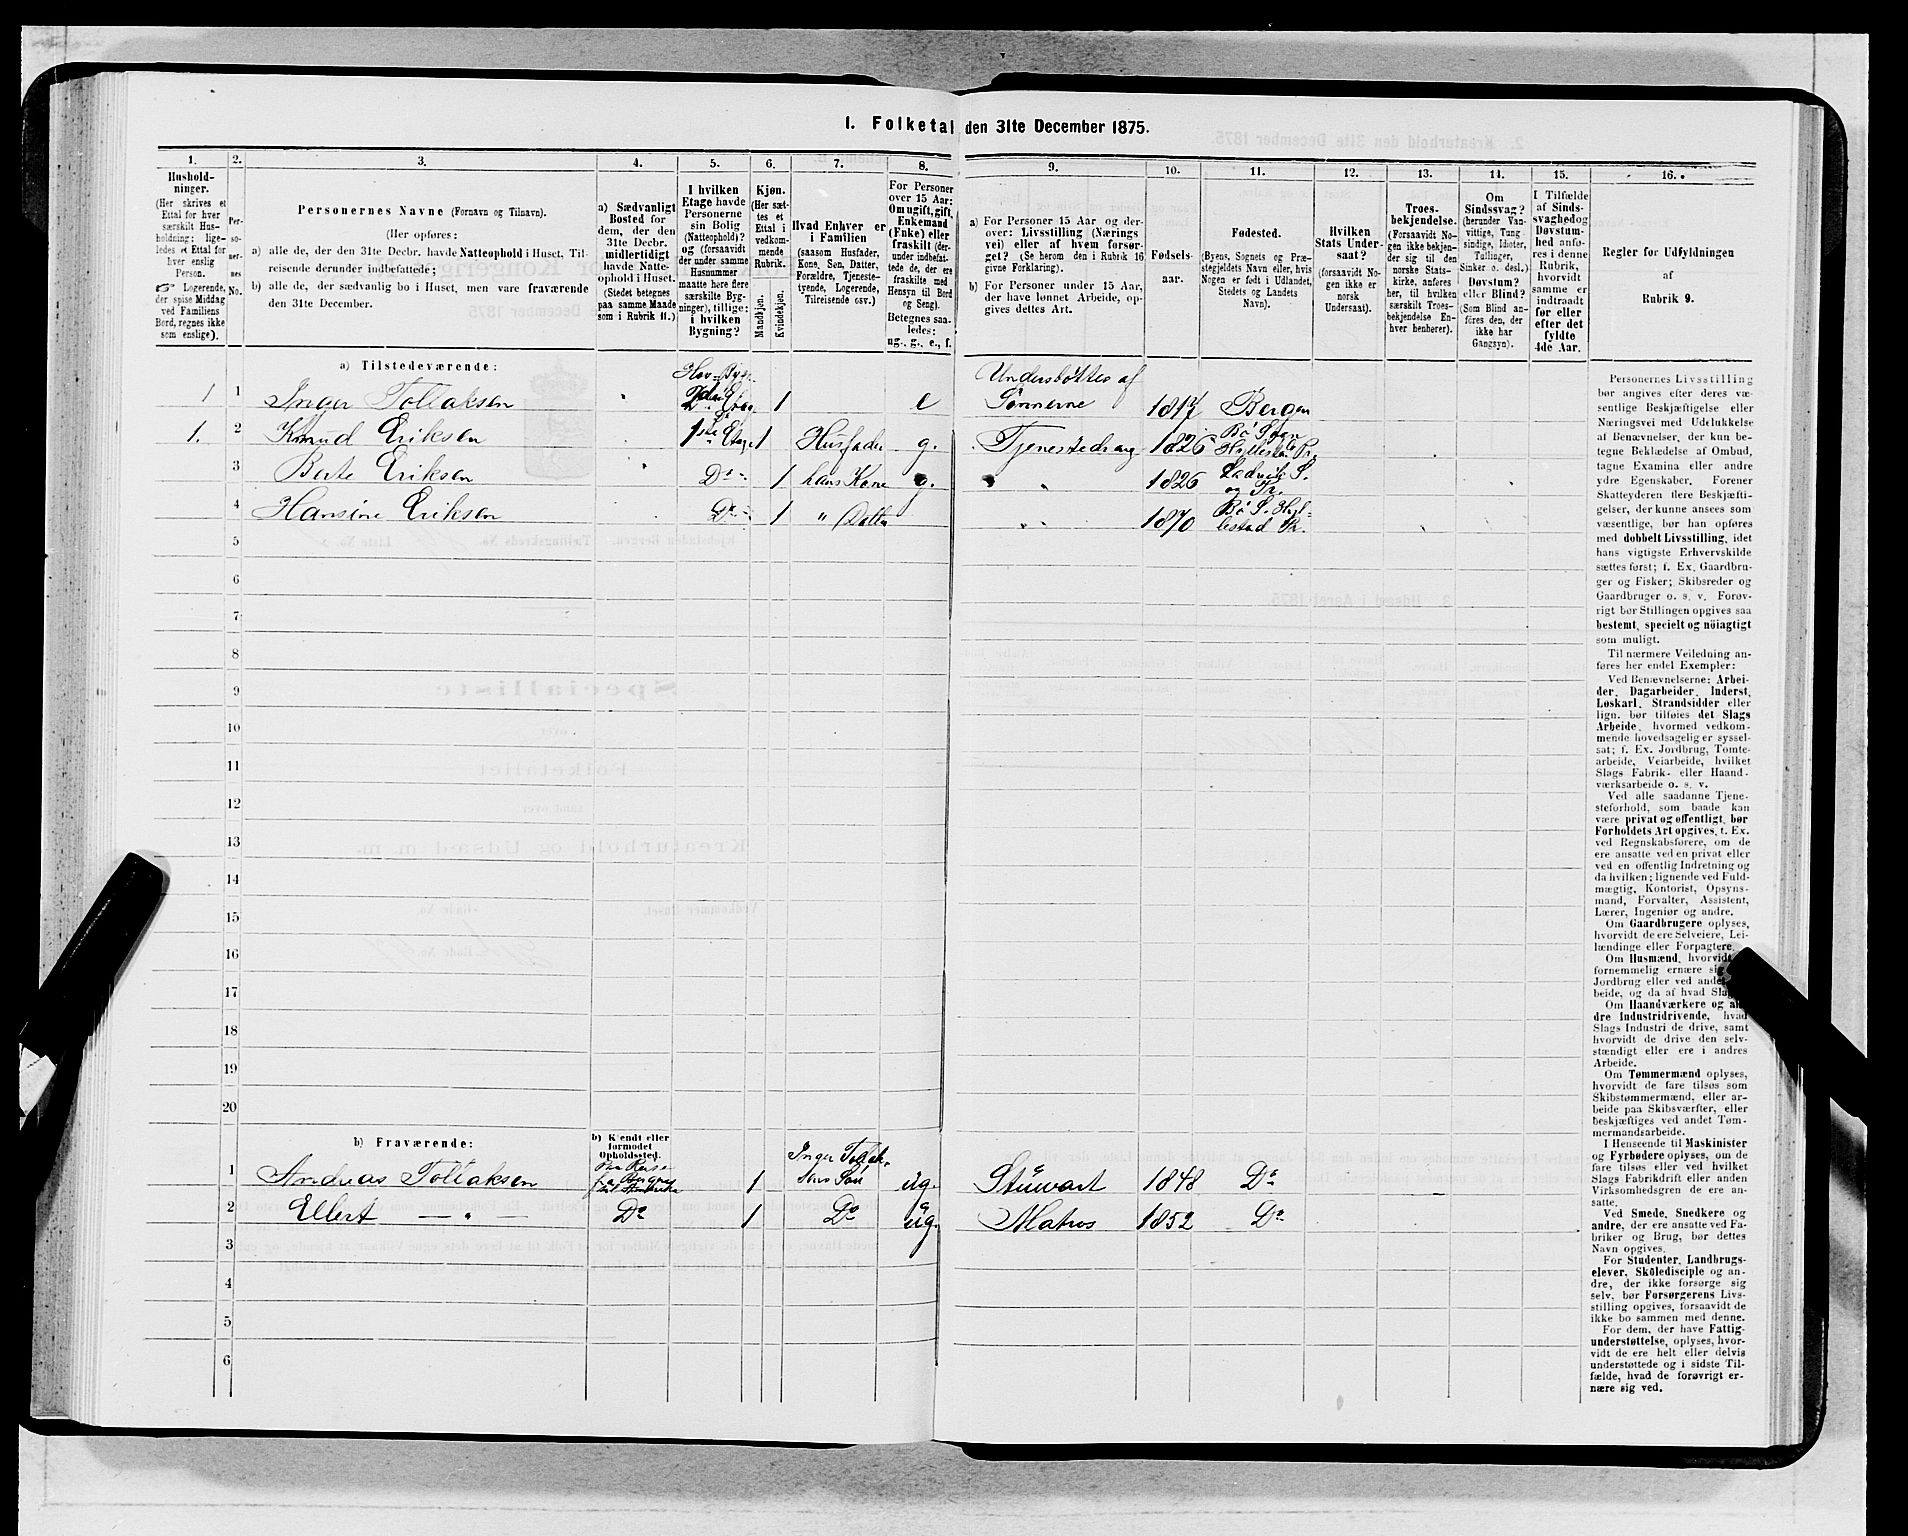 1. Folketal den 31te December 1875.
1. 2. 3. 4. 5. 6. 7. 8. 9. 10. 11. 12. 13. 14. 15. 16.
Hushold-
ninger.
(Her skrives et
Ettal for hver
særskilt Hus-
holdning; lige-
ledes et Ettal for
hver enslig
Person.
☞ Logerende,
der spise Middag
ved Familiens
Bord, regnes ikke
som enslige).
Per-
so-
ner-
nes
No.
Personernes Navne (Fornavn og Tilnavn).
(Her opføres:
a) alle de, der den 31te Decbr. havde Natteophold i Huset, Til-
reisende derunder indbefattede;
b) alle de, der sædvanlig bo i Huset, men vare fraværende
den 31te December.
a) Sædvanligt
Bosted for
dem, der den
31te Decbr.
midlertidigt
havde Natte-
ophold i Huset.
(Stedet betegnes
paa samme Maade
som i Rubrik 11.)
I hvilken
Etage havde
Personerne
sin Bolig
(Natteophold)?
og (forsaavidt
der under samme
Husnummer
maatte høre flere
særskilte Byg-
ninger), tillige:
i hvilken
Bygning?
Kjøn.
(Her sæt-
tes et
Ettal i
vedkom-
mende
Rubrik.
Mandkjøn.
Kvindekjøn.
Hvad Enhver er
i Familien
(saasom Husfader,
Kone, Søn, Datter,
Forældre, Tjeneste-
tyende, Logerende,
Tilreisende osv.)
For Personer
over 15 Aar:
Om ugift, gift,
Enkemand
(Enke) eller
fraskilt (der-
under indbefat-
tede de, der ere
fraskilte med
Hensyn til Bord
og Seng).
Betegnes saa-
ledes:
ug., g., e., f.
a) For Personer 15 Aar og der-
over: Livsstilling (Nærings
vei) eller af hvem forsør-
get? (Se herom den i Rubrik 16
givne Forklaring).
b) For Personer under 15 Aar,
der have lønnet Arbeide, op-
gives dettes Art.
Fødsels-
aar.
Fødested.
(Byens, Sognets og Præ-
stegjeldets Navn eller, hvis
Nogen er født i Udlandet,
Stedets og Landets
Navn).
Hvilken
Stats Under-
saat?
(forsaavidt No-
gen ikke er
norsk
Undersaat).
Troes-
bekjendelse.
(Forsaavidt No-
gen ikke bekjen-
der sig til den
norske Stats-
kirke, anføres
her, til hvilken
særskilt Troes-
bekjendelse En-
hver henhører).
Om
Sindssvag?
(herunder Van-
vittige, Tung
sindige, Idioter,
Tullinger,
Sinker o. desl.)
Døvstum?
eller Blind?
(Som Blind an-
føres den, der
ikke har
Gangsyn).
I Tilfælde
af Sinds-
svaghed og
Døvstum-
hed anfø-
res i denne
Rubrik,
hvorvidt
samme er
indtraadt
før eller
efter det
fyldte
4de Aar.
Regler for Udfyldningen
af
Rubrik 9.
a) Tilstedeværende:
1 1 Inger Tollaksen 1 e Understøttes af
Sønnerne 1817 Bergen
1. 2 Knud Eriksen 1ste Etage 1 Husfader g. Tjenestedrang 1826
3 Berte Eriksen Do 1 hans Kone g. " 1826 Ladvik S.
og Pr.
4 Hansine Eriksen Do 1 " Datter " 1870 Bø S. Hyl-
lestad Pr.
5
6
7
8
9
10
11
12
13
14
15
16
17
18
19
20
b) Fraværende:
b) Kjendt eller
formodet
Opholdssted.
1 Andreas Tollaksen 1 Inger Tollak-
sens Søn ug. Stuwart 1848 Do
2 Ellert — " — Do 1 Do ug. Matros 1852 Do
3
4
5
6
Personernes Livsstilling
bør angives efter deres væ-
sentlige Beskjæftigelse eller
Næringsvei med Udelukkelse
af Benævnelser, der kun be-
tegne Beklædelse af Ombud,
tagne Examina eller andre
ydre Egenskaber. Forener
Skatteyderen flere Beskjæfti-
gelser, der kunne ansees som
væsentlige, bør han opføres
med dobbelt Livsstilling, idet
hans vigtigste Erhvervskilde
sættes først; f. Ex. Gaardbru-
ger og Fisker; Skibsreder og
Gaardbruger o. s. v. Forøv-
rigt bør Stillingen opgives saa
bestemt, specielt og nöiagtigt
som muligt.
Til nærmere Veiledning an-
føres her endel Exempler:
Ved Benævnelserne: Arbei-
der, Dagarbeider, Inderst,
Løskarl, Strandsidder eller
lign. bør tilføies det Slags
Arbeide, hvormed vedkom-
mende hovedsagelig er syssel-
sat; f. Ex. Jordbrug, Tomte-
arbeide, Veiarbeide, hvilket
Slags Fabrik- eller Haand-
værksarbeide o. s. v.
Ved alle saadanne Tjene-
steforhold, som baade kan
være privat og offentligt, bør
Forholdets Art opgives, t. Ex.
ved Regnskabsførere, om de
ere ansatte ved en privat eller
ved en offentlig Indretning og
da hvilken; lignende ved Fuld-
mægtig, Kontorist, Opsyns-
mand, Forvalter, Assistent,
Lærer, Ingeniør og andre.
Om Gaardbrugere oplyses,
hvorvidt de ere Selveiere, Lei-
lændinge eller Forpagtere.
Om Husmænd, hvorvidt
fornemmelig ernære
Jordbrug eller ved
beide, og da af hvad
Om Haandværkere og
dre Industridrivende, hvad
Slags Industri de drive, samt
hvorvidt de drive den selv-
stændigt eller ere i andres
Arbeide.
Om Tømmermænd oplyses,
hvorvidt de fare tilsøs som
Skibstømmermænd, eller ar-
beide paa Skibsværfter, eller
beskjæftiges ved andet Tøm-
mermandsarbeide.
I Henseende til Maskinister
og Fyrbødere oplyses, om de
fare tilsøs eller ved hvilket
Slags Fabrikdrift eller anden
Virksomhedsgren de ere an-
satte.
Ved Smede, Snedkere og
andre, der ere ansatte ved Fa-
briker og Brug, bør dettes
Navn opgives.
For Studenter, Landbrugs-
elever, Skoledisciple og an-
dre, der ikke forsørge sig
selv, bør Forsørgerens Livs-
stilling opgives, forsaavidt de
ikke bo sammen med denne.
For dem, der have Fattig-
understøttelse, oplyses, hvor-
vidt de ere helt eller delvis
understøttede og i sidste Til-
fælde, hvad de forøvrigt er-
nære sig ved.